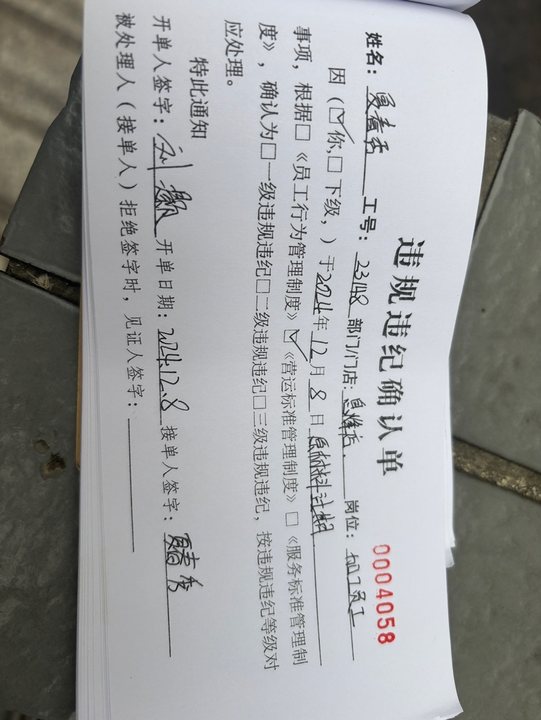 违规违纪确认单
0004058
姓名： 工号：2348 部门/门店： 店 岗位：加工员工
因（☑你,☐下级，）于2024年12月8日 过期
事项，根据☐《员工行为管理制度》☑《营运标准管理制度》☐《服务标准管理制
度》，确认为☐一级违规违纪☐二级违规违纪☐三级违规违纪，按违规违纪等级对
应处理。
特此通知
开单人签字： 开单日期：2024.12.8 接单人签字：
被处理人（接单人）拒绝签字时，见证人签字：